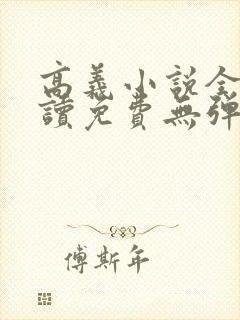 高義小說全
讀免費無彈
傅斯年